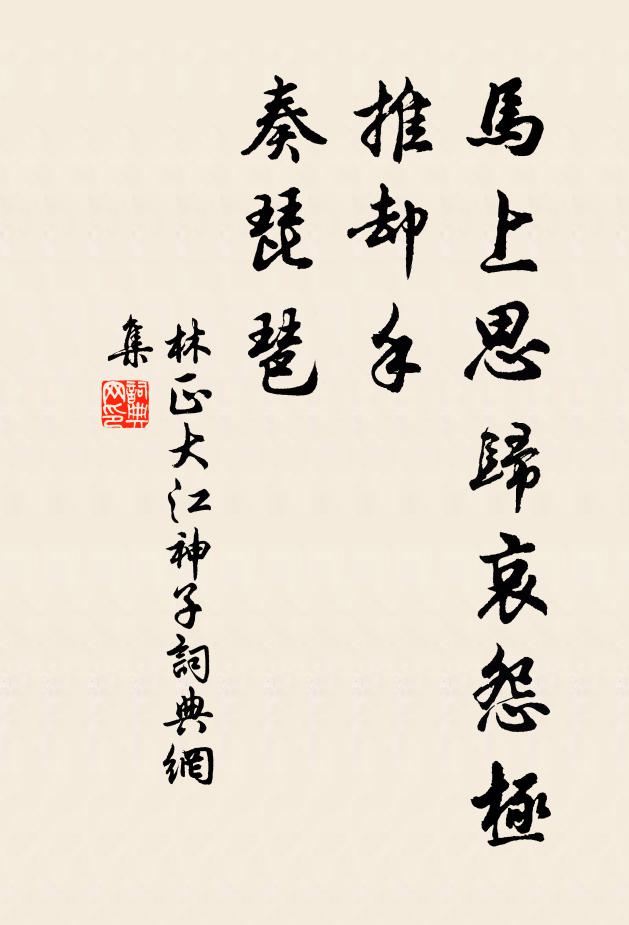 馬上思歸哀怨極
推却手
奏琵琶
林正大江神子詞典網
集
詞典
网印